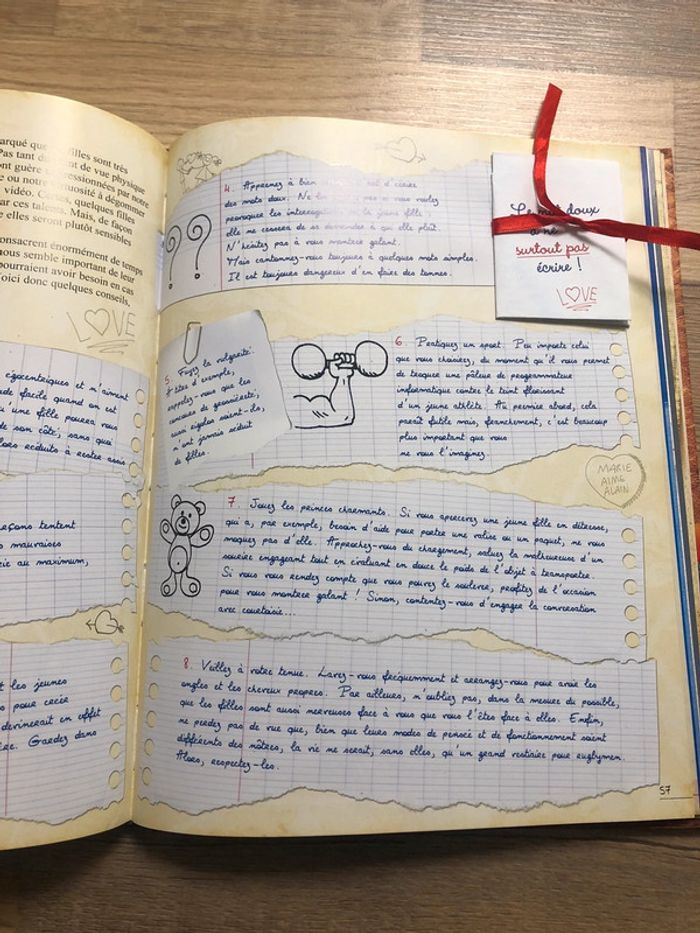 arqué que
filles sont très
Pas tant du
t de vue physique
ont guère
ressionnées par notre
e ou notre
tuosité à dégommer
vidéo. C
es, quelques filles
ar ces talents. Mais, de façon
e elles seront plutôt sensibles
onsacrent énormément de temps
nous semble important de leur
pourraient avoir besoin en cas
oici donc quelques conseils,
LOVE
égocentriques et n'aiment
ude facile quand on est
u'une fille pourra vous
de son côté, sans qui
lors réduits à rester assis
arçons tentent
s mauvaises
rie au maximum,
t les jeunes
s pour créer
devinerait en effet
rée. Gardez dans
4. Apprenez à bien
d'écrire
des mots doux. Ne
si vous voulez
provoquer les interrogations
la jeune fille :
elle ne cessera de se demander à qui elle plaît.
N'hésitez pas à vous montrer galant.
Mais cantonnez-vous toujours à quelques mots simples.
Il est toujours dangereux d'en faire des tonnes.
Le mot doux
à ne
surtout pas
écrire !
LOVE
5. Fuyez la vulgarité.
d'exemple,
rappelez-vous que les
concours de grossièreté,
aussi rigolos soient-ils,
n'ont jamais séduit
de filles.
6. Pratiquez un sport. Peu importe celui
que vous choisirez, du moment qu'il vous permet
de troquer une pâleur de programmateur
informatique contre le teint florissant
d'un jeune athlète. Au premier abord, cela
paraît futile mais, franchement, c'est beaucoup
plus important que vous
ne vous l'imaginez.
MARIE
AIME
ALAIN
7. Jouez les princes charmants. Si vous apercevez une jeune fille en détresse,
qui a, par exemple, besoin d'aide pour porter une valise ou un paquet, ne vous
moquez pas d'elle. Approchez-vous du chargement, saluez la malheureuse d'un
sourire engageant tout en évaluant en douce le poids de l'objet à transporter.
Si vous vous rendez compte que vous pouvez le soulever, profitez de l'occasion
pour vous montrer galant ! Sinon, contentez-vous d'engager la conversation
avec courtoisie...
8. Veillez à votre tenue. Lavez-vous fréquemment et arrangez-vous pour avoir les
ongles et les cheveux propres. Par ailleurs, n'oubliez pas, dans la mesure du possible,
que les filles sont aussi nerveuses face à vous que vous l'êtes face à elles. Enfin,
ne perdez pas de vue que, bien que leurs modes de pensée et de fonctionnement soient
différents des nôtres, la vie ne serait, sans elles, qu'un grand vestiaire pour rugbymen.
Alors, respectez-les.
57